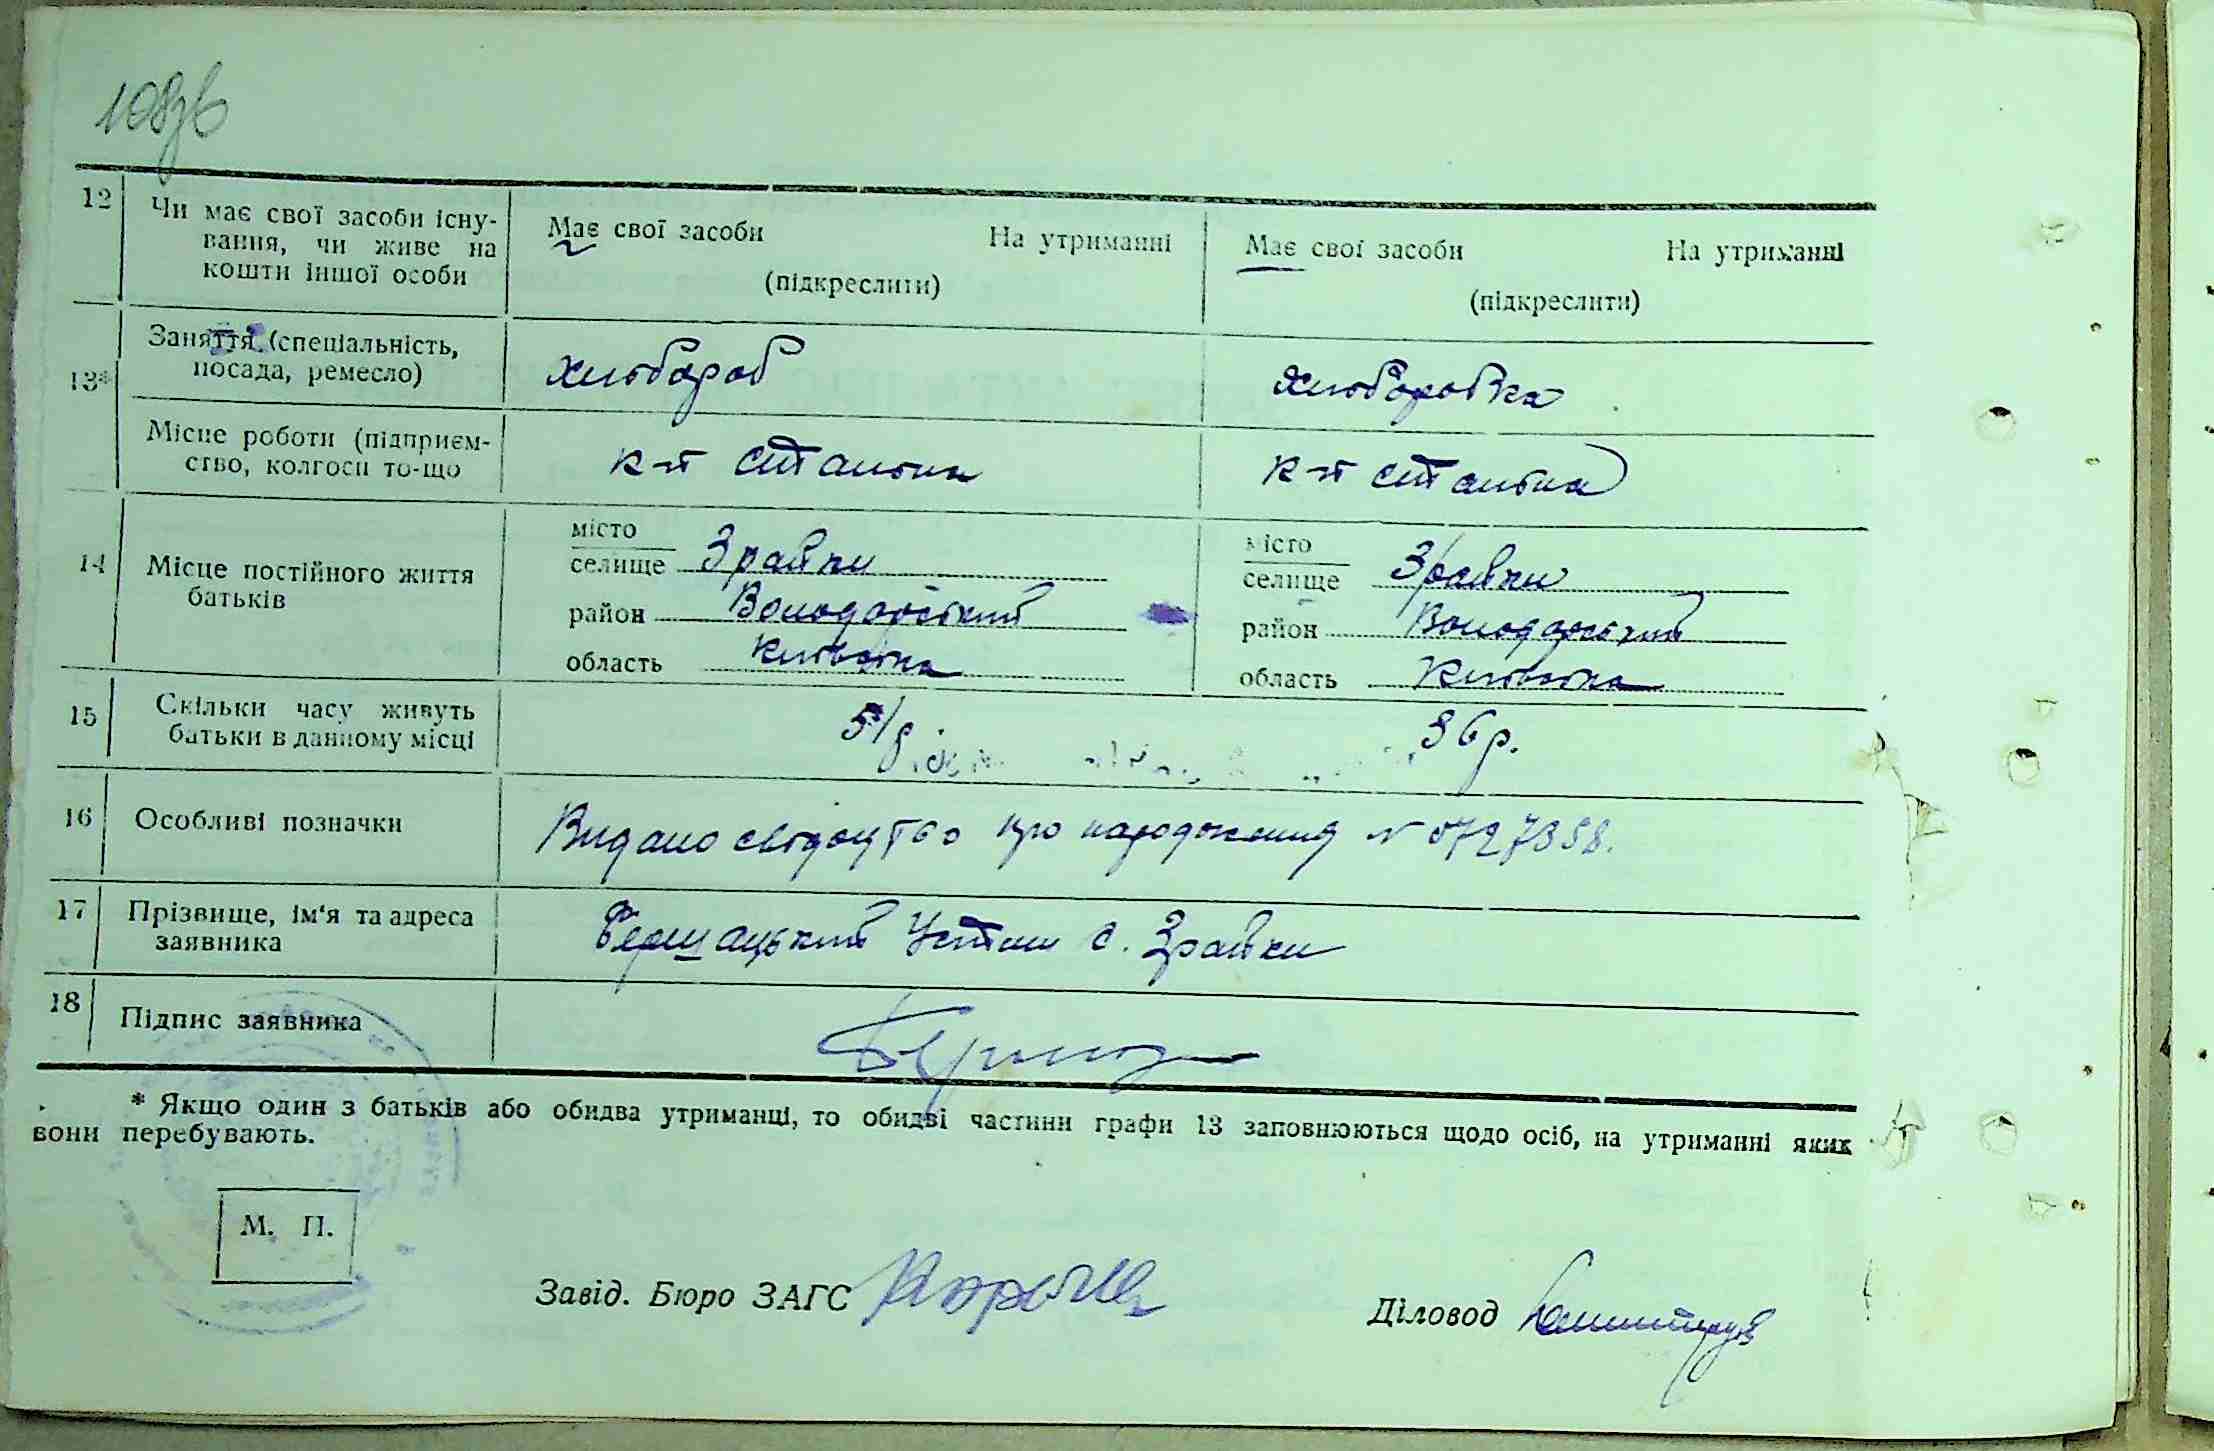 108зв
12 Чи має свої засоби існу-
вання, чи живе на
кошти іншої особи
Має свої засоби На утриманні
(підкреслити)
Має свої засоби На утриманні
(підкреслити)
13* Заняття (спеціальність,
посада, ремесло)
хлібороб
хліборобка
Місце роботи (підприєм-
ство, колгосп то-що
к-п Сталіна
к-п Сталіна
14 Місце постійного життя
батьків
місто
селище Зрайки
район Володарський
область Київська
місто
селище Зрайки
район Володарський
область Київська
15 Скільки часу живуть
батьки в данному місці
36 р.
16 Особливі позначки
Видано свідоцтво про народження N 0727358.
17 Прізвище, ім'я та адреса
заявника
Бершацький Устим с. Зрайки
18 Підпис заявника
* Якщо один з батьків або обидва утриманці, то обидві частини графи 13 заповнюються щодо осіб, на утриманні яких
вони перебувають.
М. П.
Завід. Бюро ЗАГС
Діловод